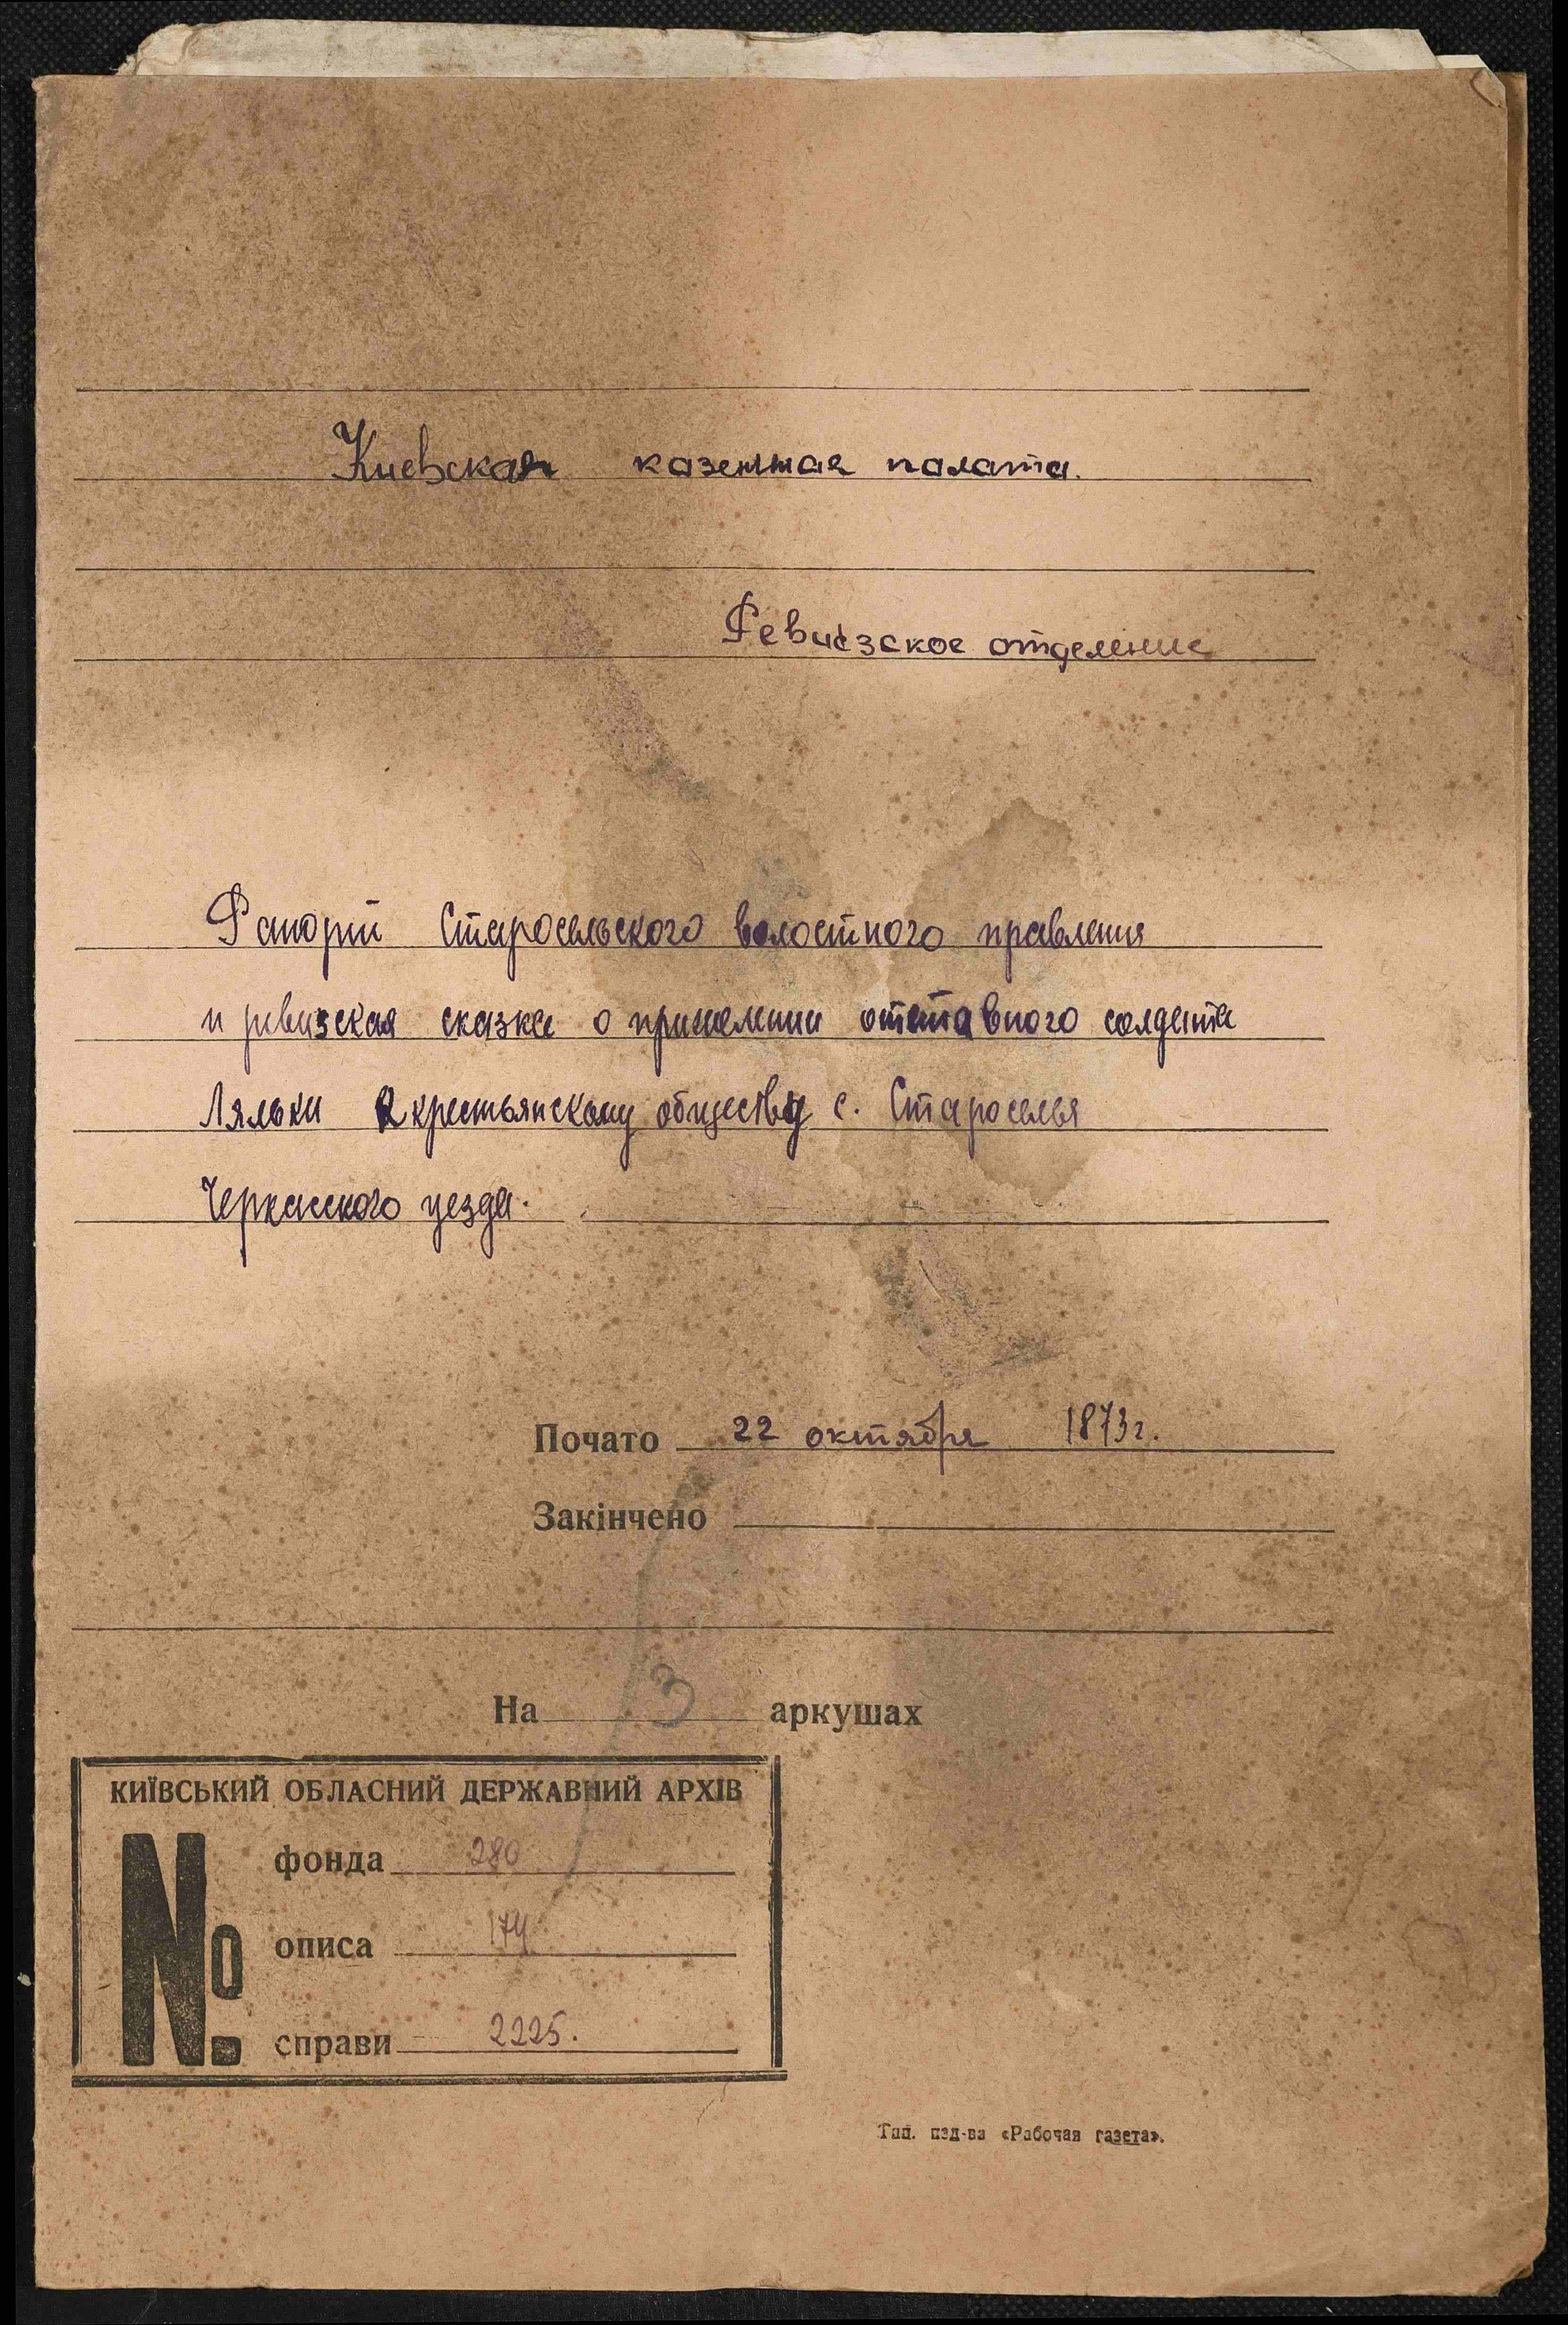 Киевская казенная палата.
Ревизское отделение
Рапорт Старосельского волостного правления
и ревизская сказка о причислении отставного солдата
Ляльки к крестьянскому обществу с. Староселья
Черкасского уезда.
Почато 22 октября 1873 г.
Закінчено
На 3 аркушах
КИЇВСЬКИЙ ОБЛАСНИЙ ДЕРЖАВНИЙ АРХІВ
№
фонда 280
описа 174
справи 2225.
Тип. изд-ва «Рабочая газета».